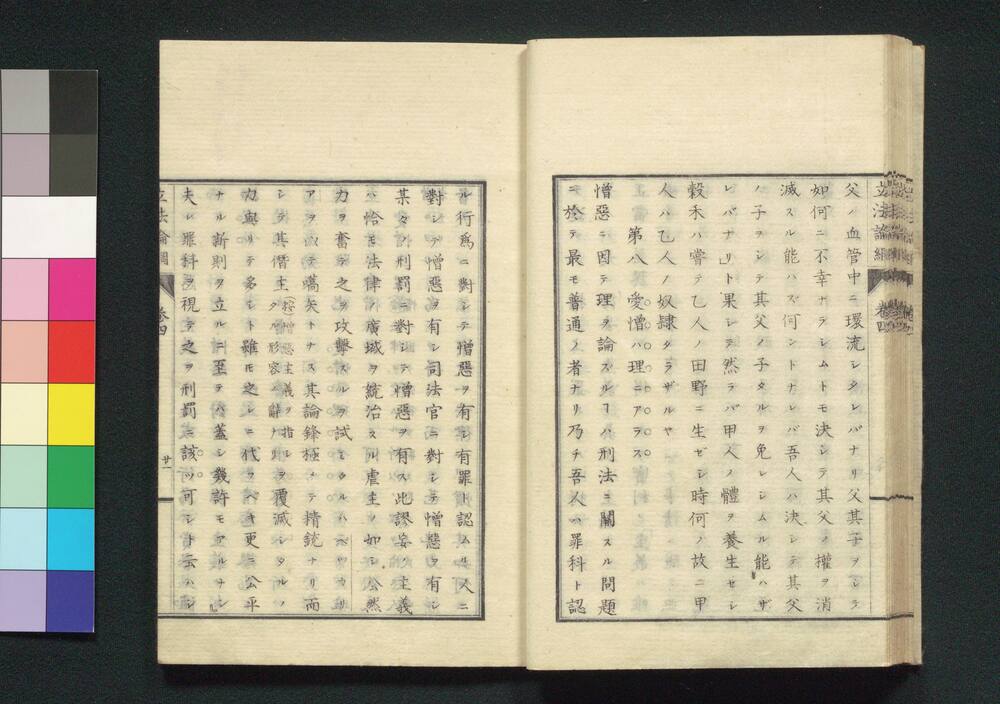 父ノ血管中ニ環流シタレバナリ父其子ヲシテ
如何ニ不幸ナラシムトモ決シテ其父ノ權ヲ消
滅スル能ハズ何ントナレバ吾人ハ決シテ其父
ノ子ヲシテ其父ノ子タルヲ免レシムル能ハザ
レバナリト果シテ然ラバ甲人ノ體ヲ養生セシ
穀禾ハ嘗テ乙人ノ田野ニ生ゼシ時何ノ故ニ甲
人ハ乙人ノ奴隷タラザルヤ
第八 愛憎ハ理ニアラス
憎惡ニ因テ理ヲ論スルヿハ刑法ニ關スル問題
ニ於テ最モ普通ノ者ナリ乃チ吾人ハ罪科ト認
立法論綱 卷四
ル行爲ニ對シテ憎惡ヲ有シ有罪ト認ムル人ニ
對シテ憎惡ヲ有シ司法官ニ對シテ憎惡ヲ有シ
某々ノ刑罰ニ對シテ憎惡ヲ有ス此謬妄ノ主義
ハ恰モ法律ノ廣域ヲ統治スル虐主ノ如シ公然
力ヲ奮テ之ヲ攻擊スルヲ試ミタルハベツカリ
アヲ以テ嚆矢トナス其論鋒極メテ精銳ナリ而
シテ其僭主(按)憎惡主義ヲ指シタル形容ノ辭ナリヲ覆滅シタルノ
力與リテ多シト雖モ之レニ代フベキ更ニ公平
ナル新則ヲ立ルニ至テハ蓋シ幾許モアルナシ
夫レ罪科ヲ視テ之ヲ刑罰ニ該ツ可シト云ハシ
立法論綱 卷四 廿